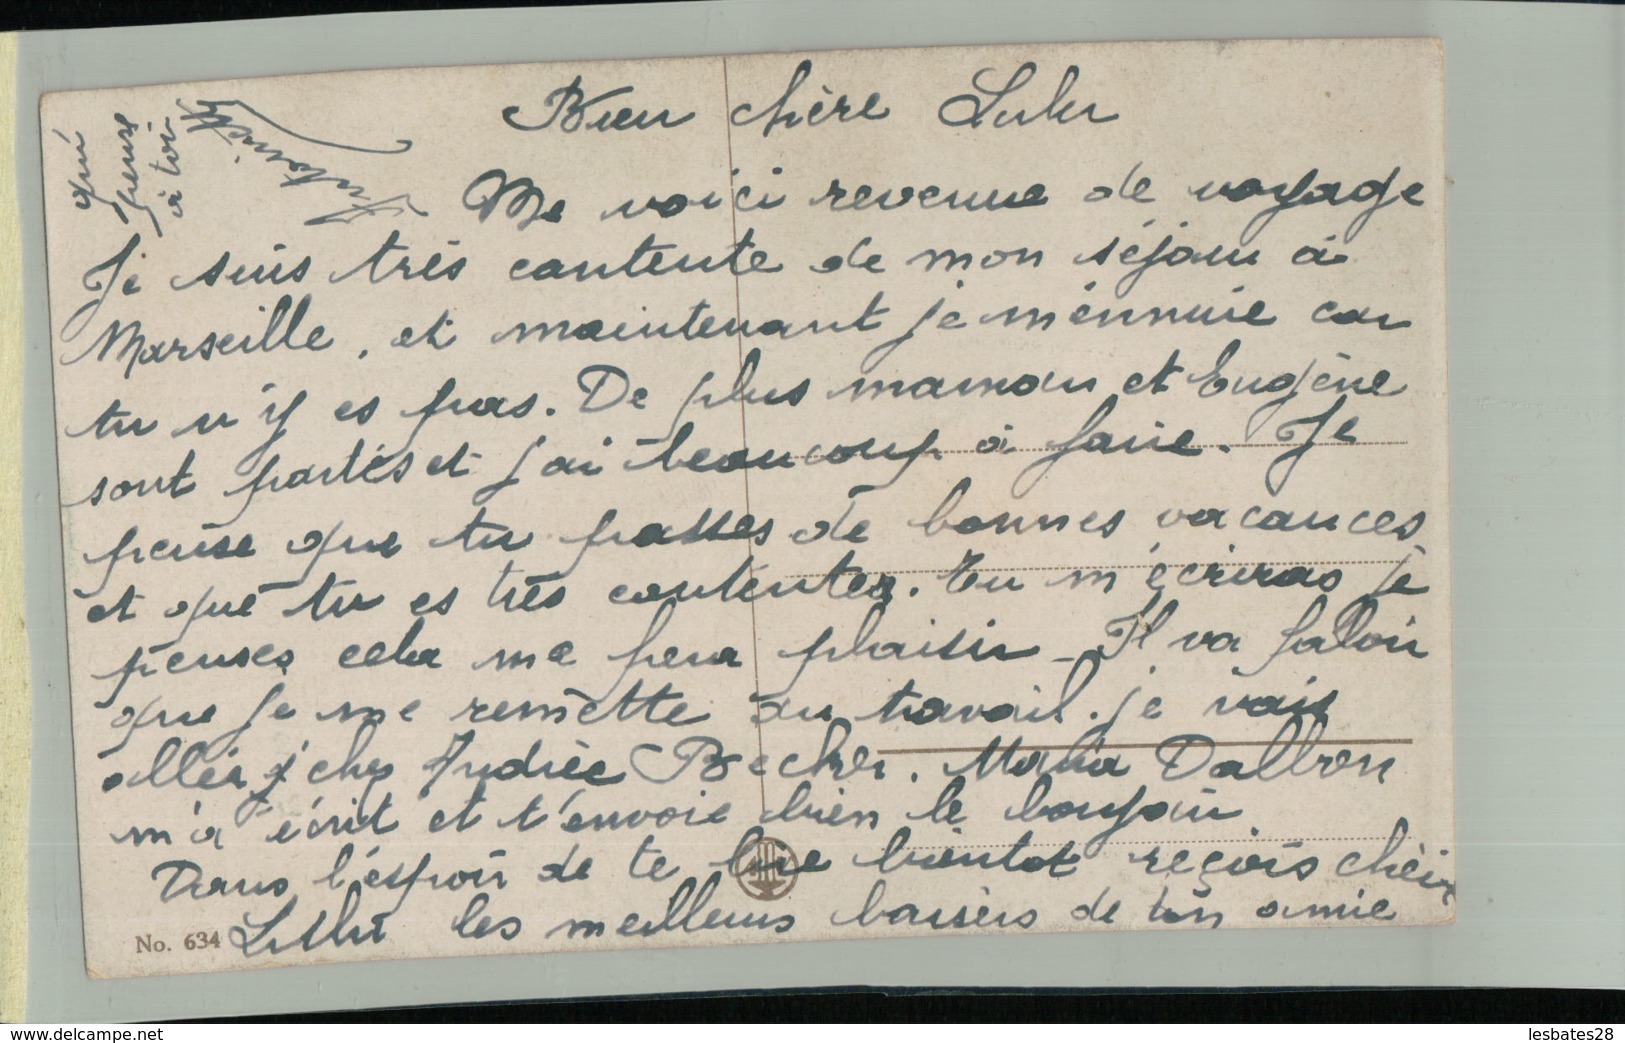 Bien chère Lulu
Me voici revenue de voyage
Je suis très contente de mon séjour à
Marseille, et maintenant je m'ennuie car
tu n'y es pas. De plus maman et Eugène
sont partis et j'ai beaucoup à faire. Je
pense que tu passes de bonnes vacances
et que tu es très contente. Tu m'écriras je
penses cela me fera plaisir - Il va faloir
que je me remette au travail. je vais
aller chez Andrée Becker. Maria Dalbon
m'a écrit et t'envoie bien le bonjour
Dans l'espoir de te lire bientot reçois chère
Lulu les meilleurs baisers de ton amie
qui
pense
à toi
No. 634
lesbates28
www.delcampe.net